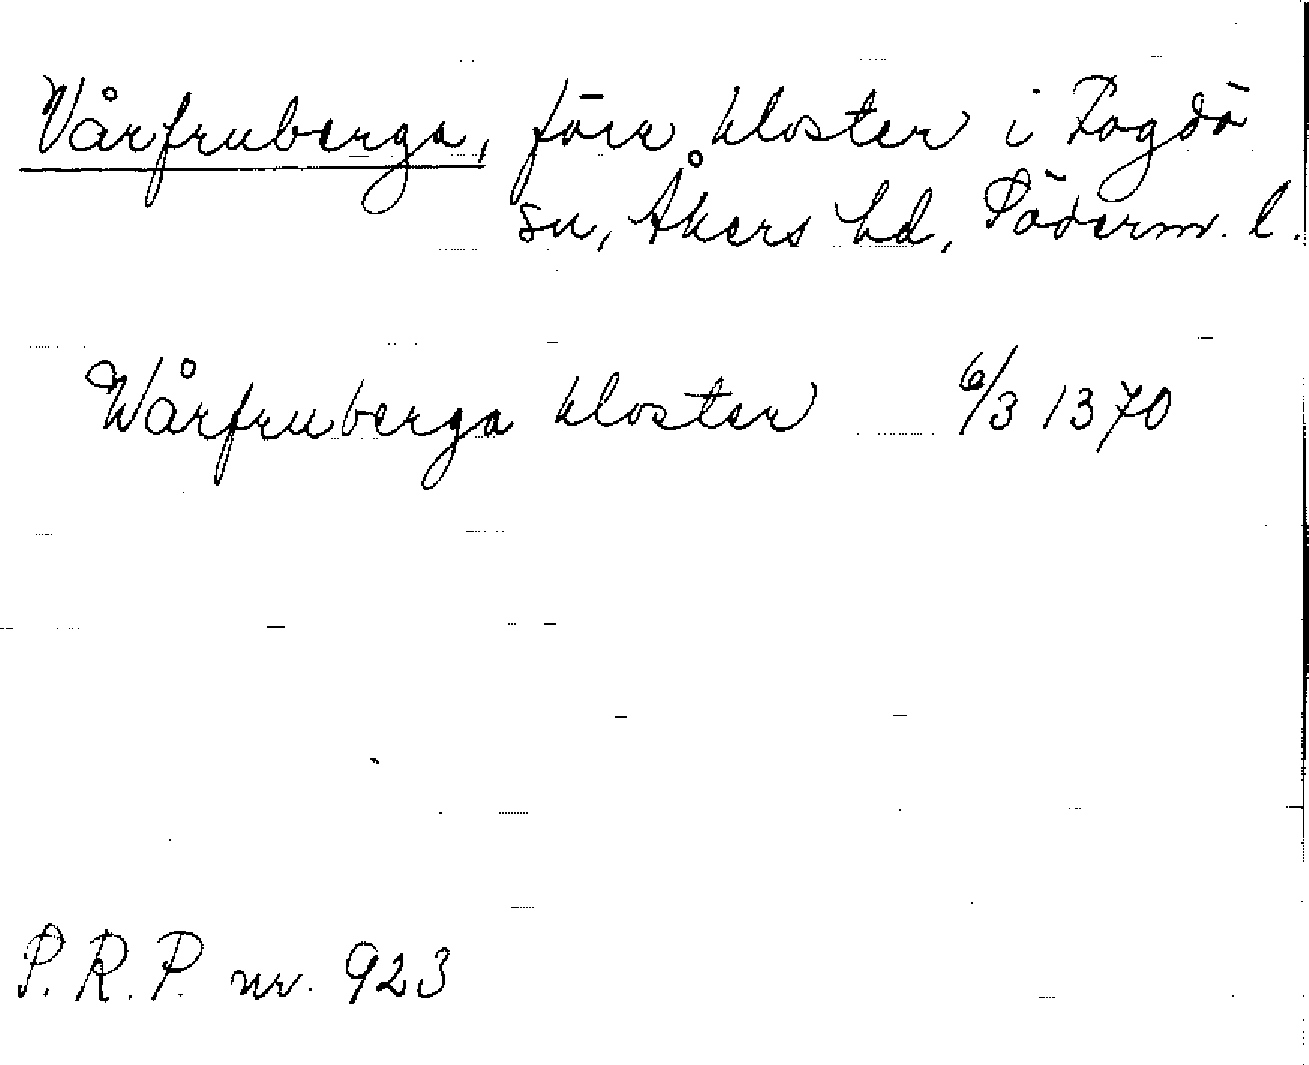 Vårfruberga, förr kloster i Fogdö
sn, Åkers hd, Söderm. l.
Wårfruberga kloster 6/3 1370
P. R. P. nr. 923